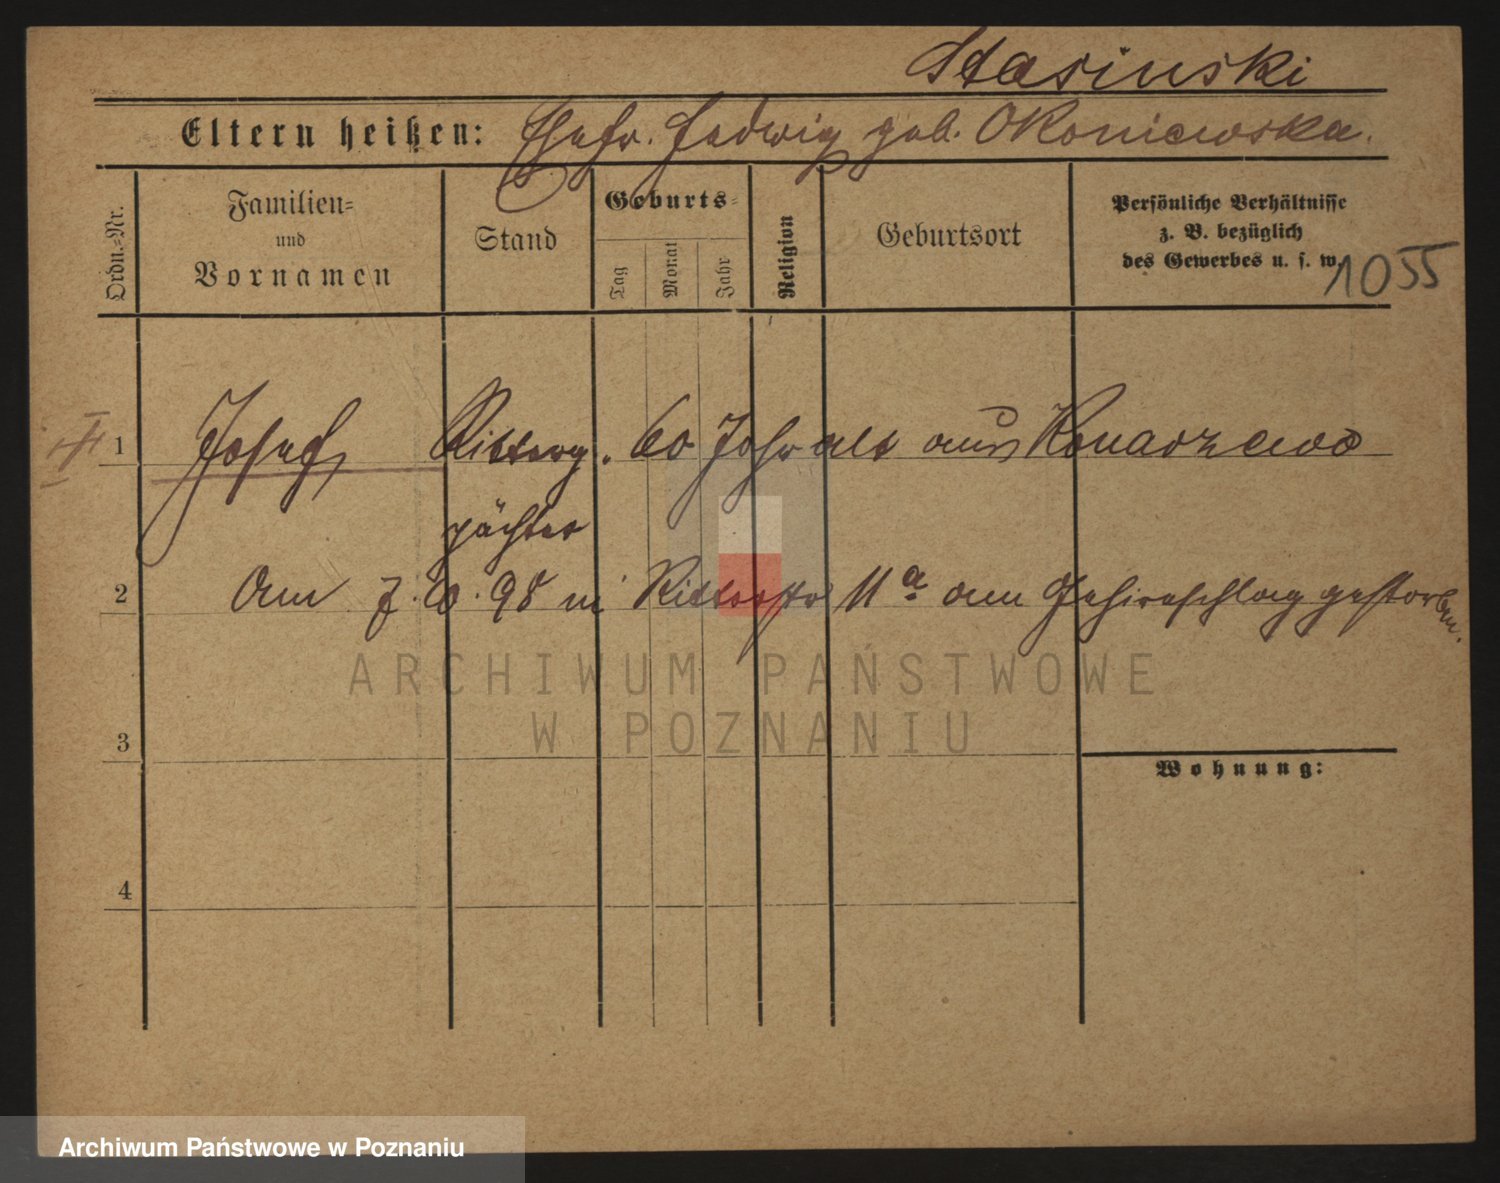 Stasinski
Eltern heißen: Ehefr. Hedwig geb. Okoniewska.
Ordn.=Nr.
Familien= und Vornamen
Stand
Geburts=
Tag
Monat
Jahr
Religion
Geburtsort
Persönliche Verhältnisse
z. B. bezüglich
des Gewerbes u. s. w.
1055
1 Josef Ritterg. 60 Jahr alt aus Konarzewo
pächter
2 Am 7. 10. 98 in Ritterstr 11a am Gehirnschlag gestorben.
ARCHIWUM PAŃSTWOWE
W POZNANIU
3
Wohnung:
4
Archiwum Państwowe w Poznaniu